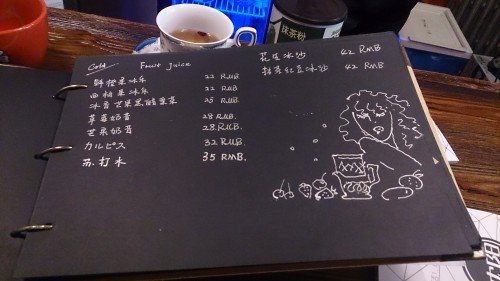 Cold Fruit Juice
鲜橙果冰乐 22 RMB.
西柚果冰乐 22 RMB.
冰香芒果黑醋 25 RMB.
草莓奶昔 28 RMB.
芒果奶昔 28 RMB.
カルピス 32 RMB.
苏打水 35 RMB.
花生冰沙 42 RMB
抹茶红豆冰沙 42 RMB
抹茶粉